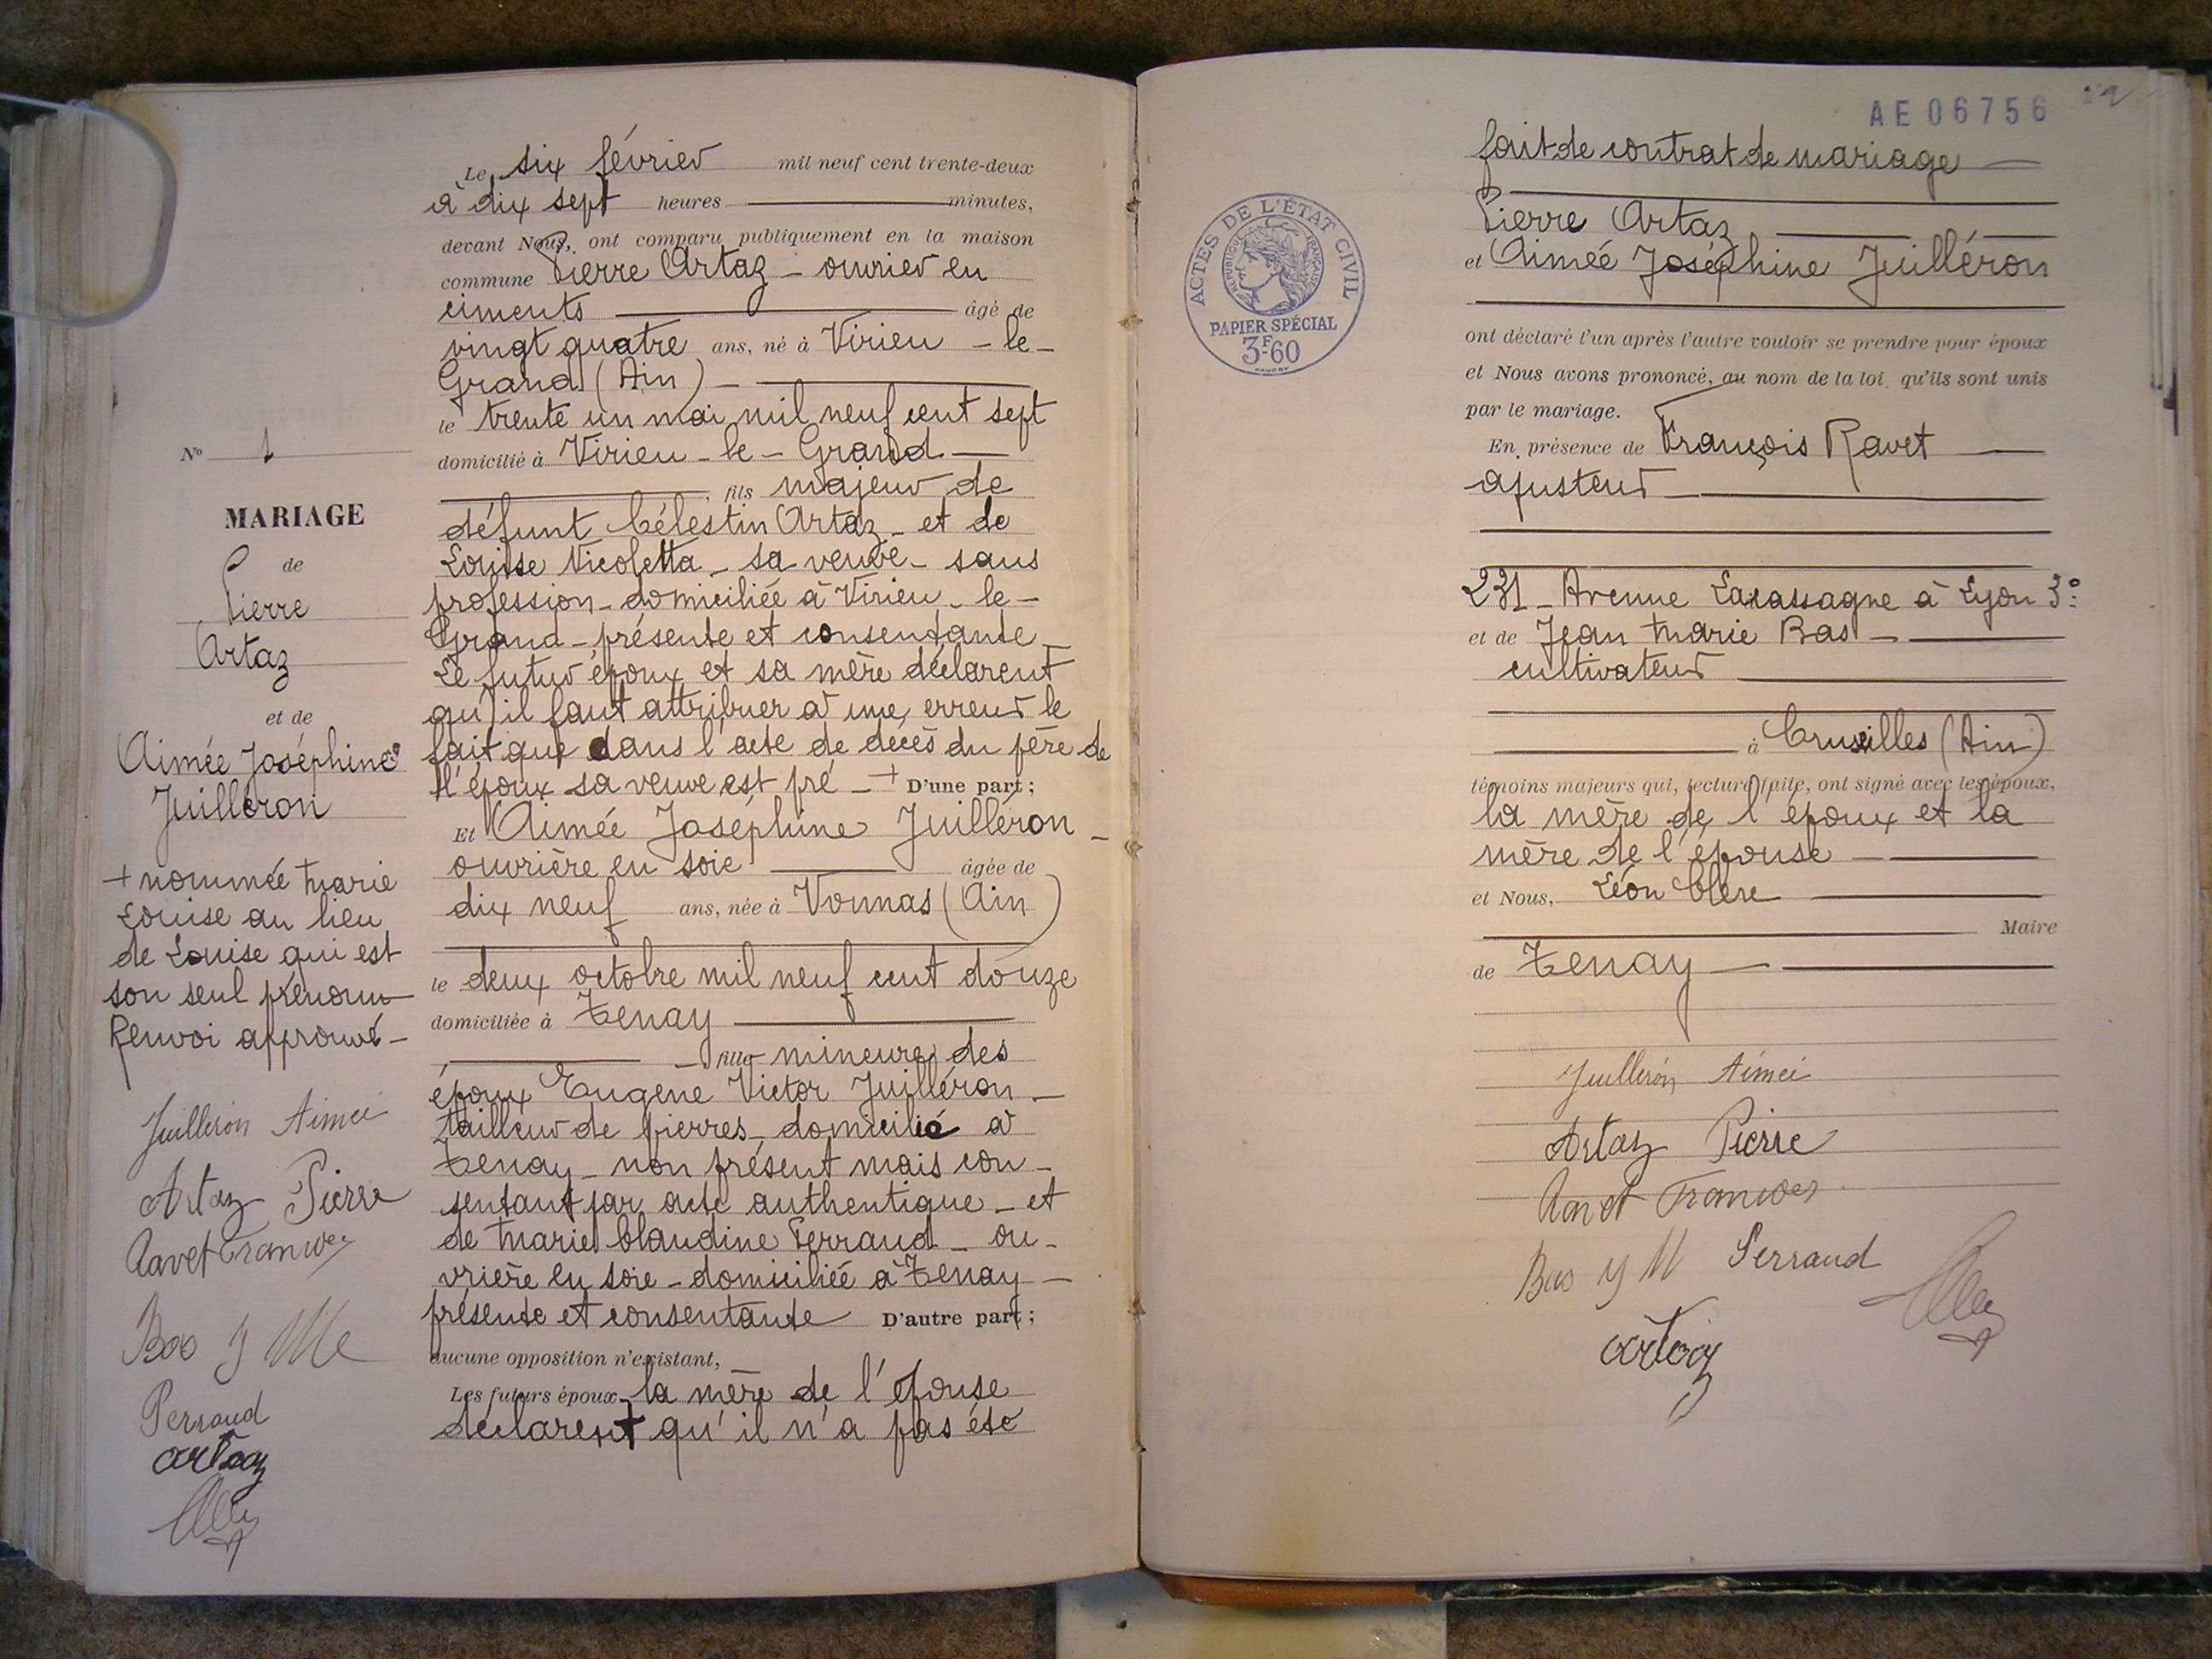 Le six février mil neuf cent trente-deux
à dix sept heures minutes,
devant Nous, ont comparu publiquement en la maison
commune Pierre Artaz - ouvrier en
ciments âgé de
vingt quatre ans, né à Virieu - le -
Grand (Ain) -
le trente un mai mil neuf cent sept
domicilié à Virieu - le - Grand -
, fils majeur de
défunt Célestin Artaz - et de
Louise Nicoletta - sa veuve - sans
profession - domiciliée à Virieu - le -
Grand - présente et consentante -
Le futur époux et sa mère déclarent
qu'il faut attribuer à une erreur le
fait que dans l'acte de décès du père de
l'époux sa veuve est pré - + D'une part ;
Et Aimée Joséphine Juilléron -
ouvrière en soie âgée de
dix neuf ans, née à Vonnas (Ain)
le deux octobre mil neuf cent douze
domiciliée à Tenay
- fille mineure des
époux Eugène Victor Juilléron -
tailleur de pierres - domicilié à
Tenay - non présent mais con -
sentant par acte authentique - et
de Marie Claudine Perraud - ou -
vrière en soie - domiciliée à Tenay -
présente et consentante D'autre part ;
aucune opposition n'existant,
Les futurs époux, la mère de l'épouse
déclarent qu'il n'a pas été
No 1
MARIAGE
de
Pierre
Artaz
et de
Aimée Joséphine
Juilléron
+ nommée Marie
Louise au lieu
de Louise qui est
son seul prénom
Renvoi approuvé -
Juilléron Aimée
Artaz Pierre
Ravet François
Bas J M
Perraud
Artaz
AE06756
fait de contrat de mariage -
Pierre Artaz
et Aimée Joséphine Juilléron
ont déclaré l'un après l'autre vouloir se prendre pour époux
et Nous avons prononcé, au nom de la loi, qu'ils sont unis
par le mariage.
En présence de François Ravet
ajusteur
231 - Avenue Lacassagne à Lyon 3e
et de Jean Marie Bas -
cultivateur
à Cruzilles (Ain)
témoins majeurs qui, lecture faite, ont signé avec les époux,
la mère de l'époux et la
mère de l'épouse -
et Nous, Léon Clerc
Maire
de Tenay -
Juilléron Aimée
Artaz Pierre
Ravet François
Bas J M Perraud
Artaz
ACTES DE L'ÉTAT CIVIL
RÉPUBLIQUE FRANÇAISE
PAPIER SPÉCIAL
3F60